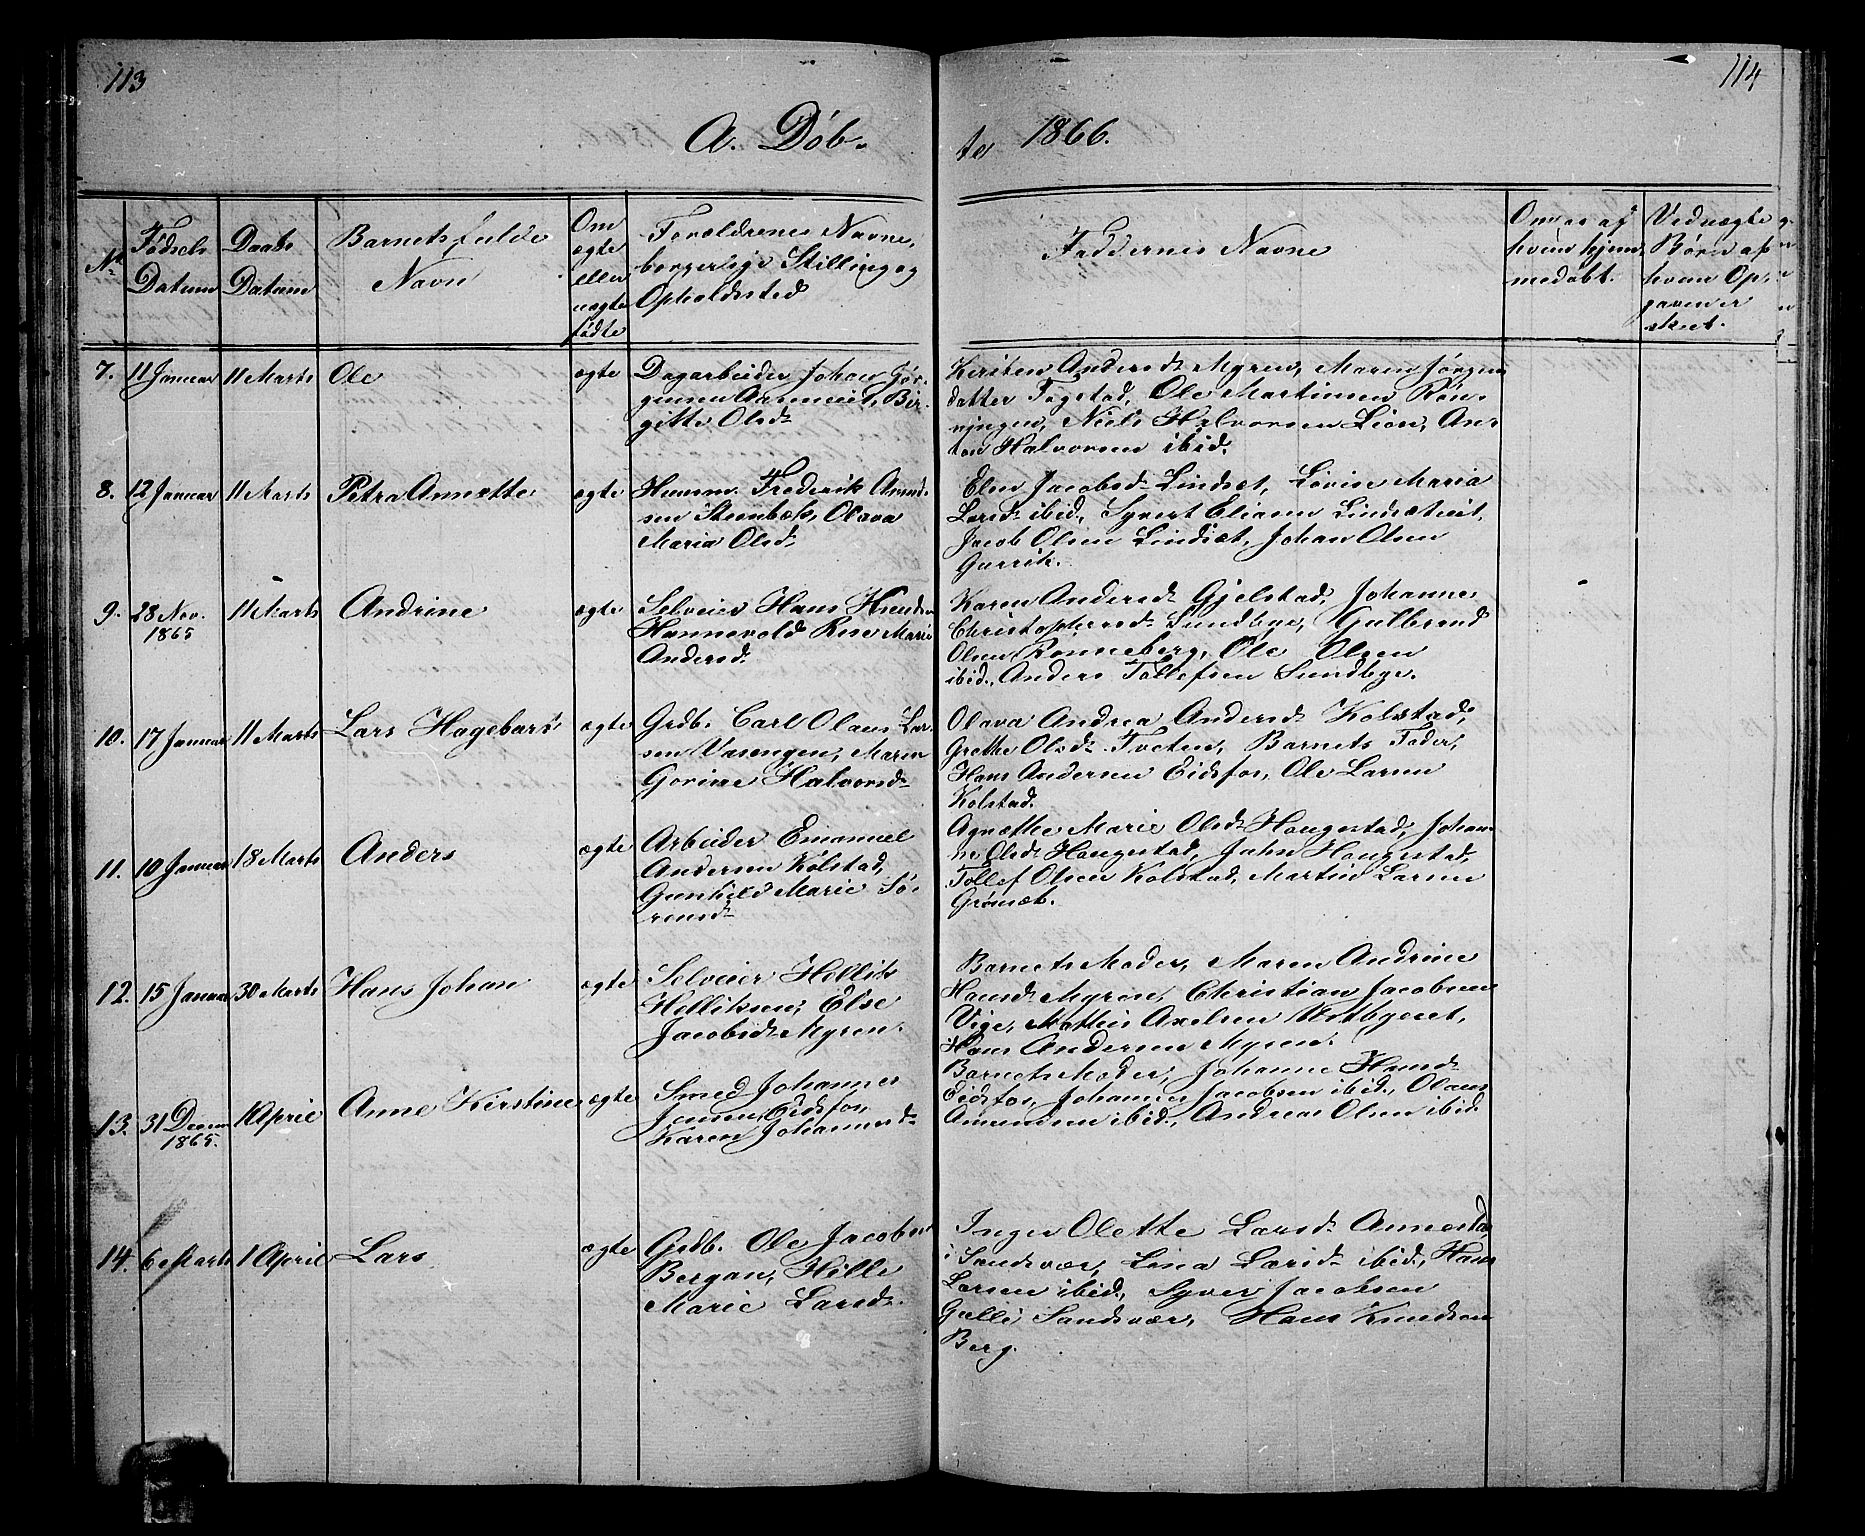 113
114
A. Døb-
te 1866.
No
Fødsels
Datum
Daabs
Datum
Barnets fulde
Navn
Om
ægte
eller
uægte
fødte
Forældrenes Navne,
borgerlige Stilling og
Opholdssted
Faddernes Navne
Om og af
hvem hjem-
medøbt.
Ved uægte
Børn af
hvem Op-
gaven er
skeet.
7. 11 Januar 11 Marts Ole ægte
Dagarbeider Johan Jør-
gensen Aasmeiet, Bir-
gitte Olsd.
Kirsten Andersd. Myren, Maren Jørgens
datter Fogstad, Ole Martinsen Røn-
ningen, Niels Halvorsen Lien, An-
ton Halvorsen ibid.
8. 12 Januar 11 Marts Petra Annette ægte
Husm. Frederik Amund-
sen Steenbæk, Olava
Maria Olsd.
Elen Jacobsd. Lindset, Lovise Maria
Larsd. ibid, Syvert Eliasen Lindseteiet,
Jacob Olsen Lindset, Johan Olsen
Gurrik.
9. 28 Nov. 1865 11 Marts Andrine ægte
Selveier Hans Knudsen
Hannevold Rise Marie
Andersd.
Karen Andersd. Gjelstad, Johanne
Christophersd. Sundbye, Gulbrand
Olsen Ronneberg, Ole Olsen
ibid., Anders Tollefsen Sundbye.
10. 17 Januar 11 Marts Lars Hagebart ægte
Grdb. Carl Olaus Lar-
sen Vasengen, Maren
Gorine Halvorsd.
Olava Andrea Andersd. Kolstad,
Grethe Olsd. Tveten, Barnets Fader,
Hans Andersen Eidsfos, Ole Larsen
Kolstad.
11. 10 Januar 18 Marts Anders ægte
Arbeider Emanuel
Andersen Kølstad,
Gunhild Marie Sø-
rensd.
Agnethe Marie Olsd. Haugestad, Johan-
ne Olsd. Haugestad, John Haugestad,
Tollef Olsen Kolstad, Martin Larsen
Grønsæt.
12. 15 Januar 30 Marts Hans Johan ægte
Selveier Hellik
Helliksen, Else
Jacobsd. Myren.
Barnets Moder, Maren Andrine
Hansd. Myren, Christian Jacobsen
Vige, Mathis Axelsen Vestbyeret,
Hans Andersen Myren.
13. 31 Decem 1865. 1 April Anne Kirstine ægte
Smed Johannes
Jensen Eidsfos,
Karen Johannesd.
Barnets Moder, Johanne Hansd.
Eidsfos, Johannes Jacobsen ibid., Olaus
Amundsen ibid., Andreas Olsen ibid.
14. 6 Marts 1 April Lars ægte
Grdb. Ole Jacobsen
Bergan, Hille
Marie Larsd.
Inger Olette Larsd. Annestad
i Sandsvær, Lina Larsd. ibid, Hans
Larsen ibid, Syver Jacobsen
Gulli Sandsvær, Hans Knudsen
Berg.